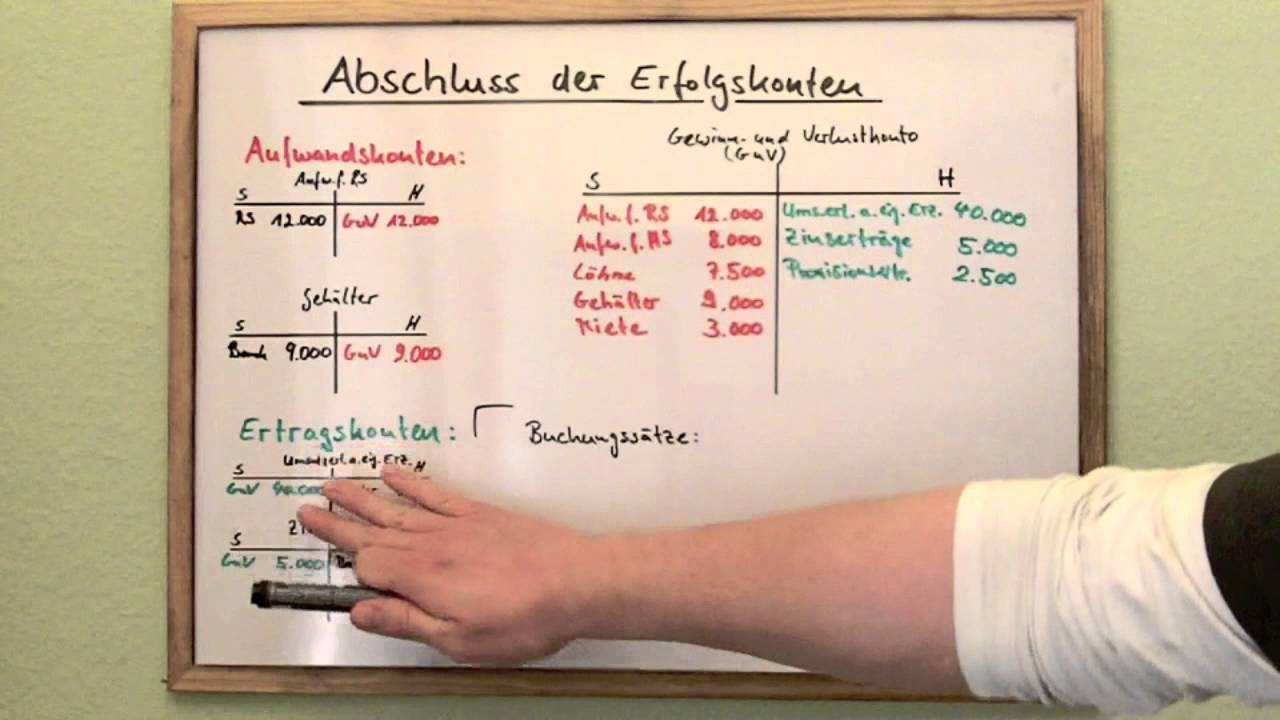 Abschluss der Erfolgskonten
Aufwandskonten:
Aufw. f. RS
S H
RS 12.000 GuV 12.000
Gehälter
S H
Bank 9.000 GuV 9.000
Ertragskonten:
Umsatzerl. a. eig. Erz.
S H
GuV 40.000
S
GuV 5.000
Gewinn- und Verlustkonto
(GuV)
S H
Aufw. f. RS 12.000 Ums.erl. a. eig. Erz. 40.000
Aufw. f. HS 8.000 Zinserträge 5.000
Löhne 7.500 Provisionsertr. 2.500
Gehälter 9.000
Miete 3.000
Buchungssätze: